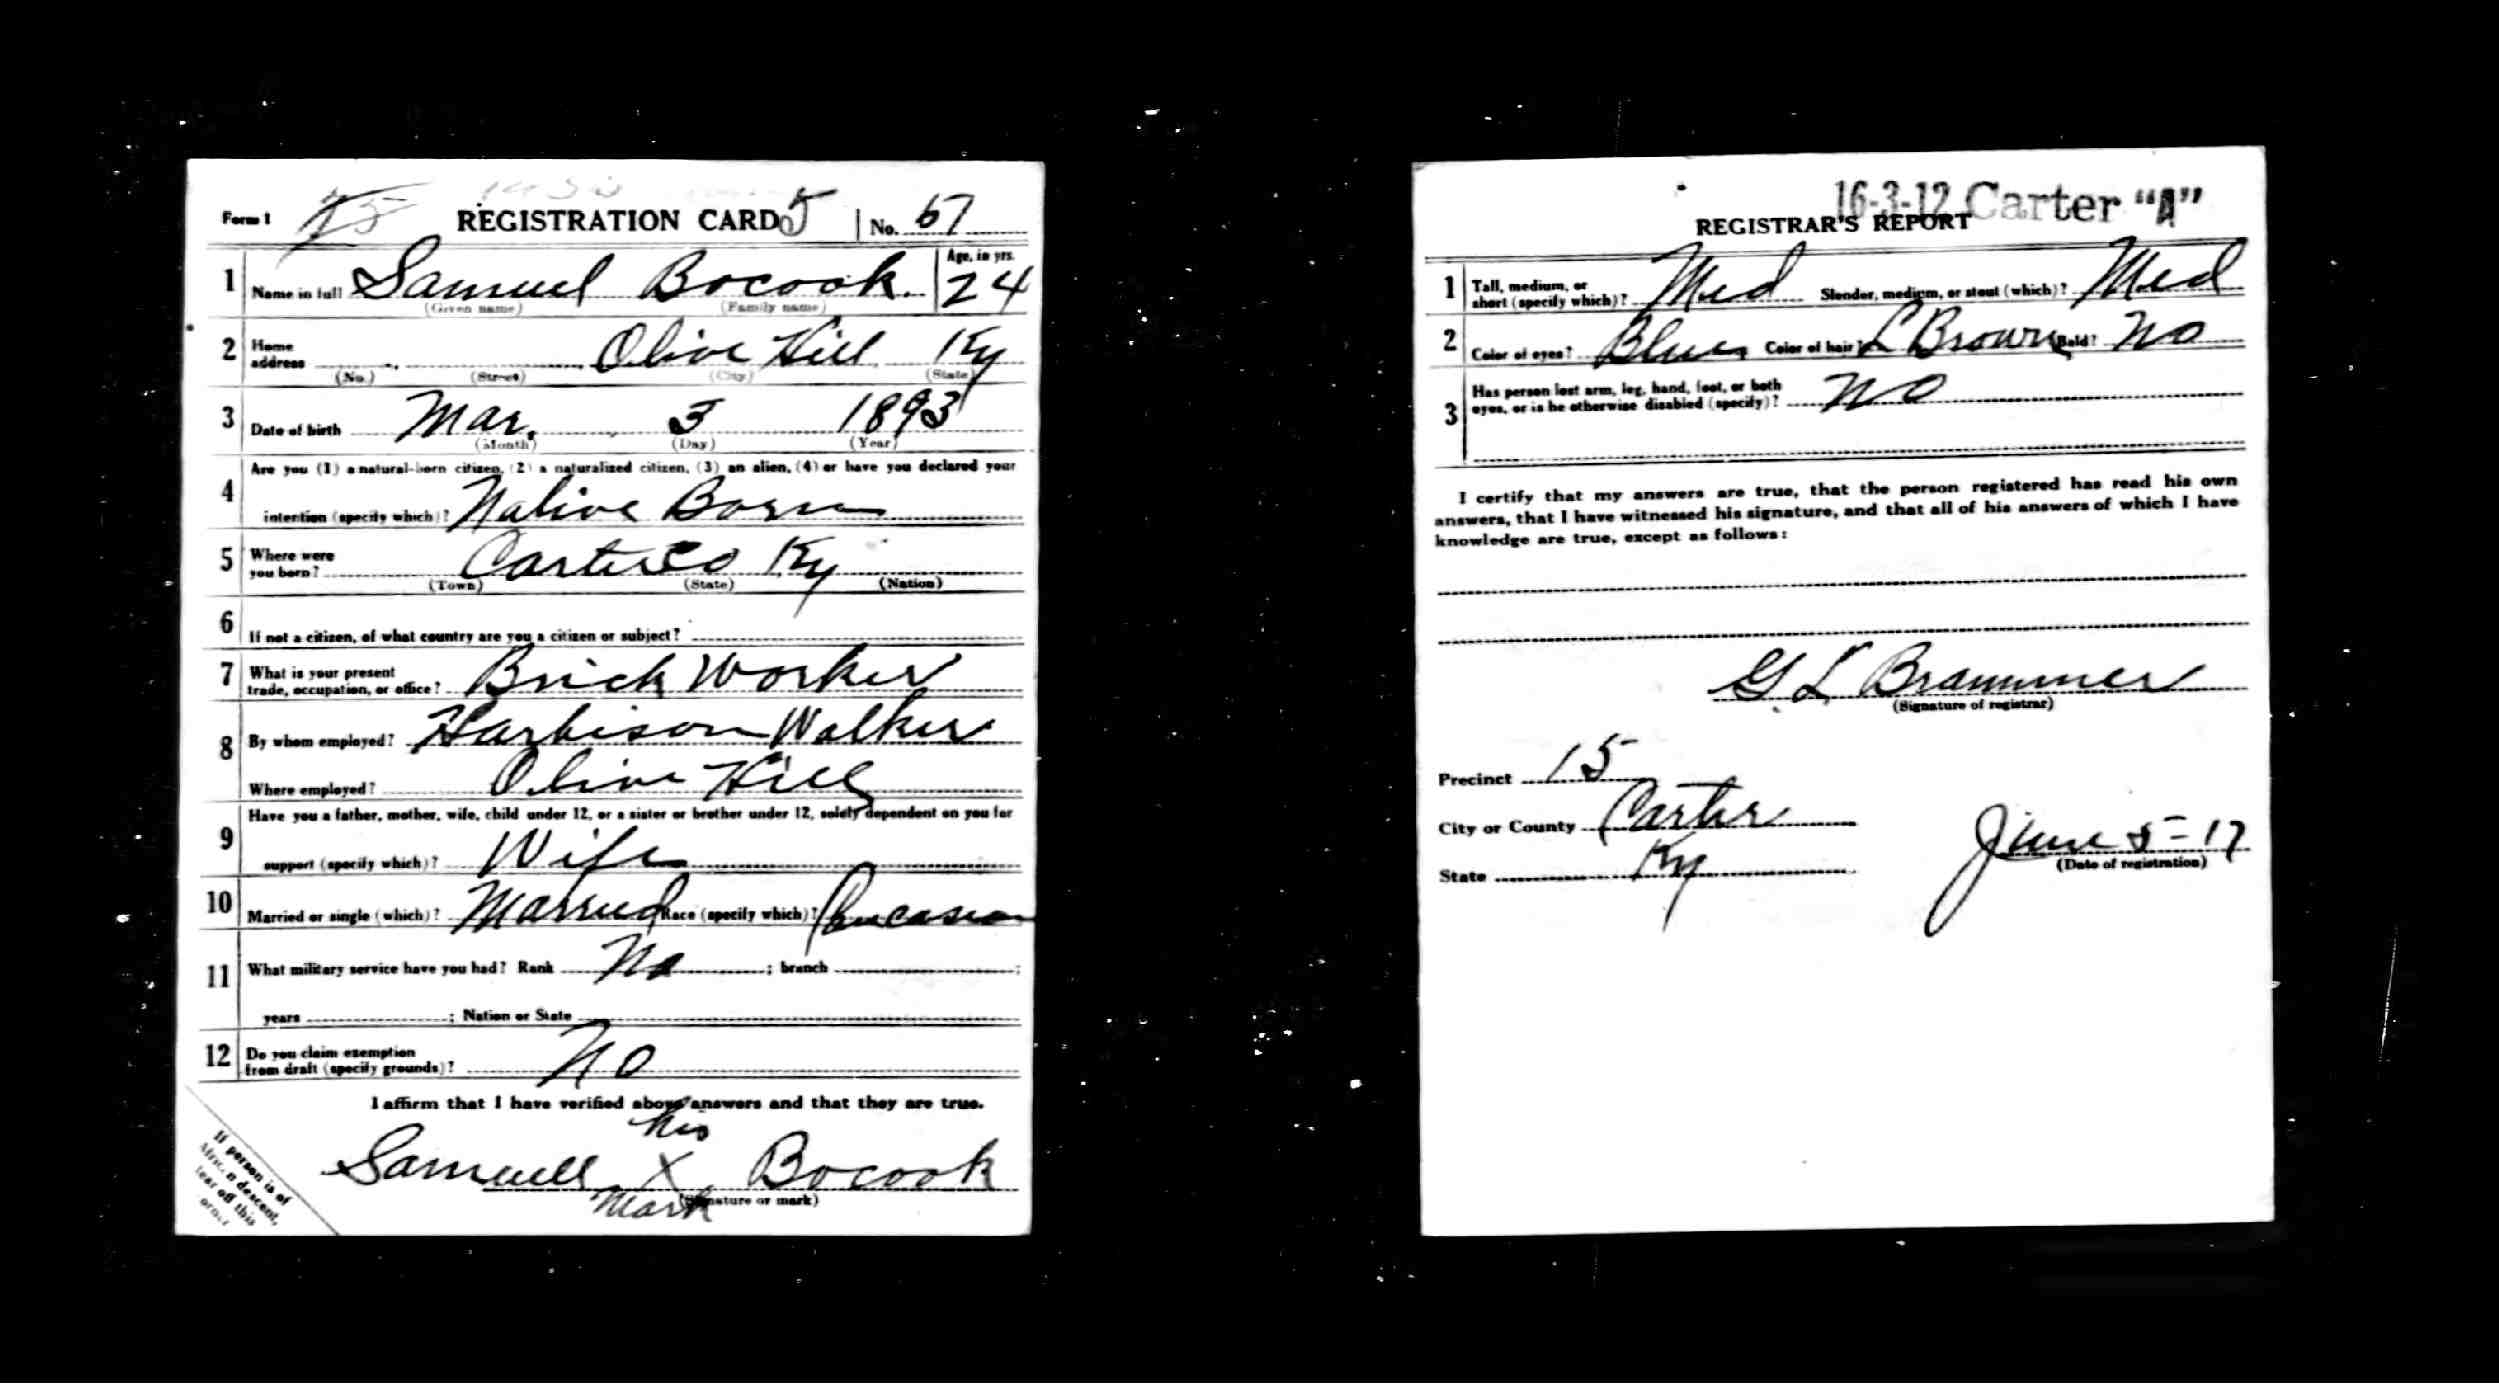 Form 1 REGISTRATION CARD 5 No. 67
1 Name in full Samuel Bocook. Age, in yrs. 24
(Given name) (Family name)
2 Home address Olive Hill Ky
(No.) (Street) (City) (State)
3 Date of birth Mar. 3 1893
(Month) (Day) (Year)
4 Are you (1) a natural-born citizen, (2) a naturalized citizen, (3) an alien, (4) or have you declared your
intention (specify which)? Native Born
5 Where were you born? Carter Co Ky
(Town) (State) (Nation)
6 If not a citizen, of what country are you a citizen or subject?
7 What is your present trade, occupation, or office? Brick Worker
8 By whom employed? Harbison Walker
Where employed? Olive Hill
9 Have you a father, mother, wife, child under 12, or a sister or brother under 12, solely dependent on you for
support (specify which)? Wife
10 Married or single (which)? Married Race (specify which)? Caucasian
11 What military service have you had? Rank No ; branch ;
years ; Nation or State
12 Do you claim exemption from draft (specify grounds)? No
I affirm that I have verified above answers and that they are true.
his
Samuell X Bocook
Mark (Signature or mark)
If person is of
African descent,
tear off this
corner
16-3-12 Carter "A"
REGISTRAR'S REPORT
1 Tall, medium, or short (specify which)? Med Slender, medium, or stout (which)? Med
2 Color of eyes? Blue Color of hair? L Brown Bald? No
3 Has person lost arm, leg, hand, foot, or both eyes, or is he otherwise disabled (specify)? No
I certify that my answers are true, that the person registered has read his own
answers, that I have witnessed his signature, and that all of his answers of which I have
knowledge are true, except as follows:
G L Brammer
(Signature of registrar)
Precinct 15
City or County Carter
State Ky
June 5-17
(Date of registration)